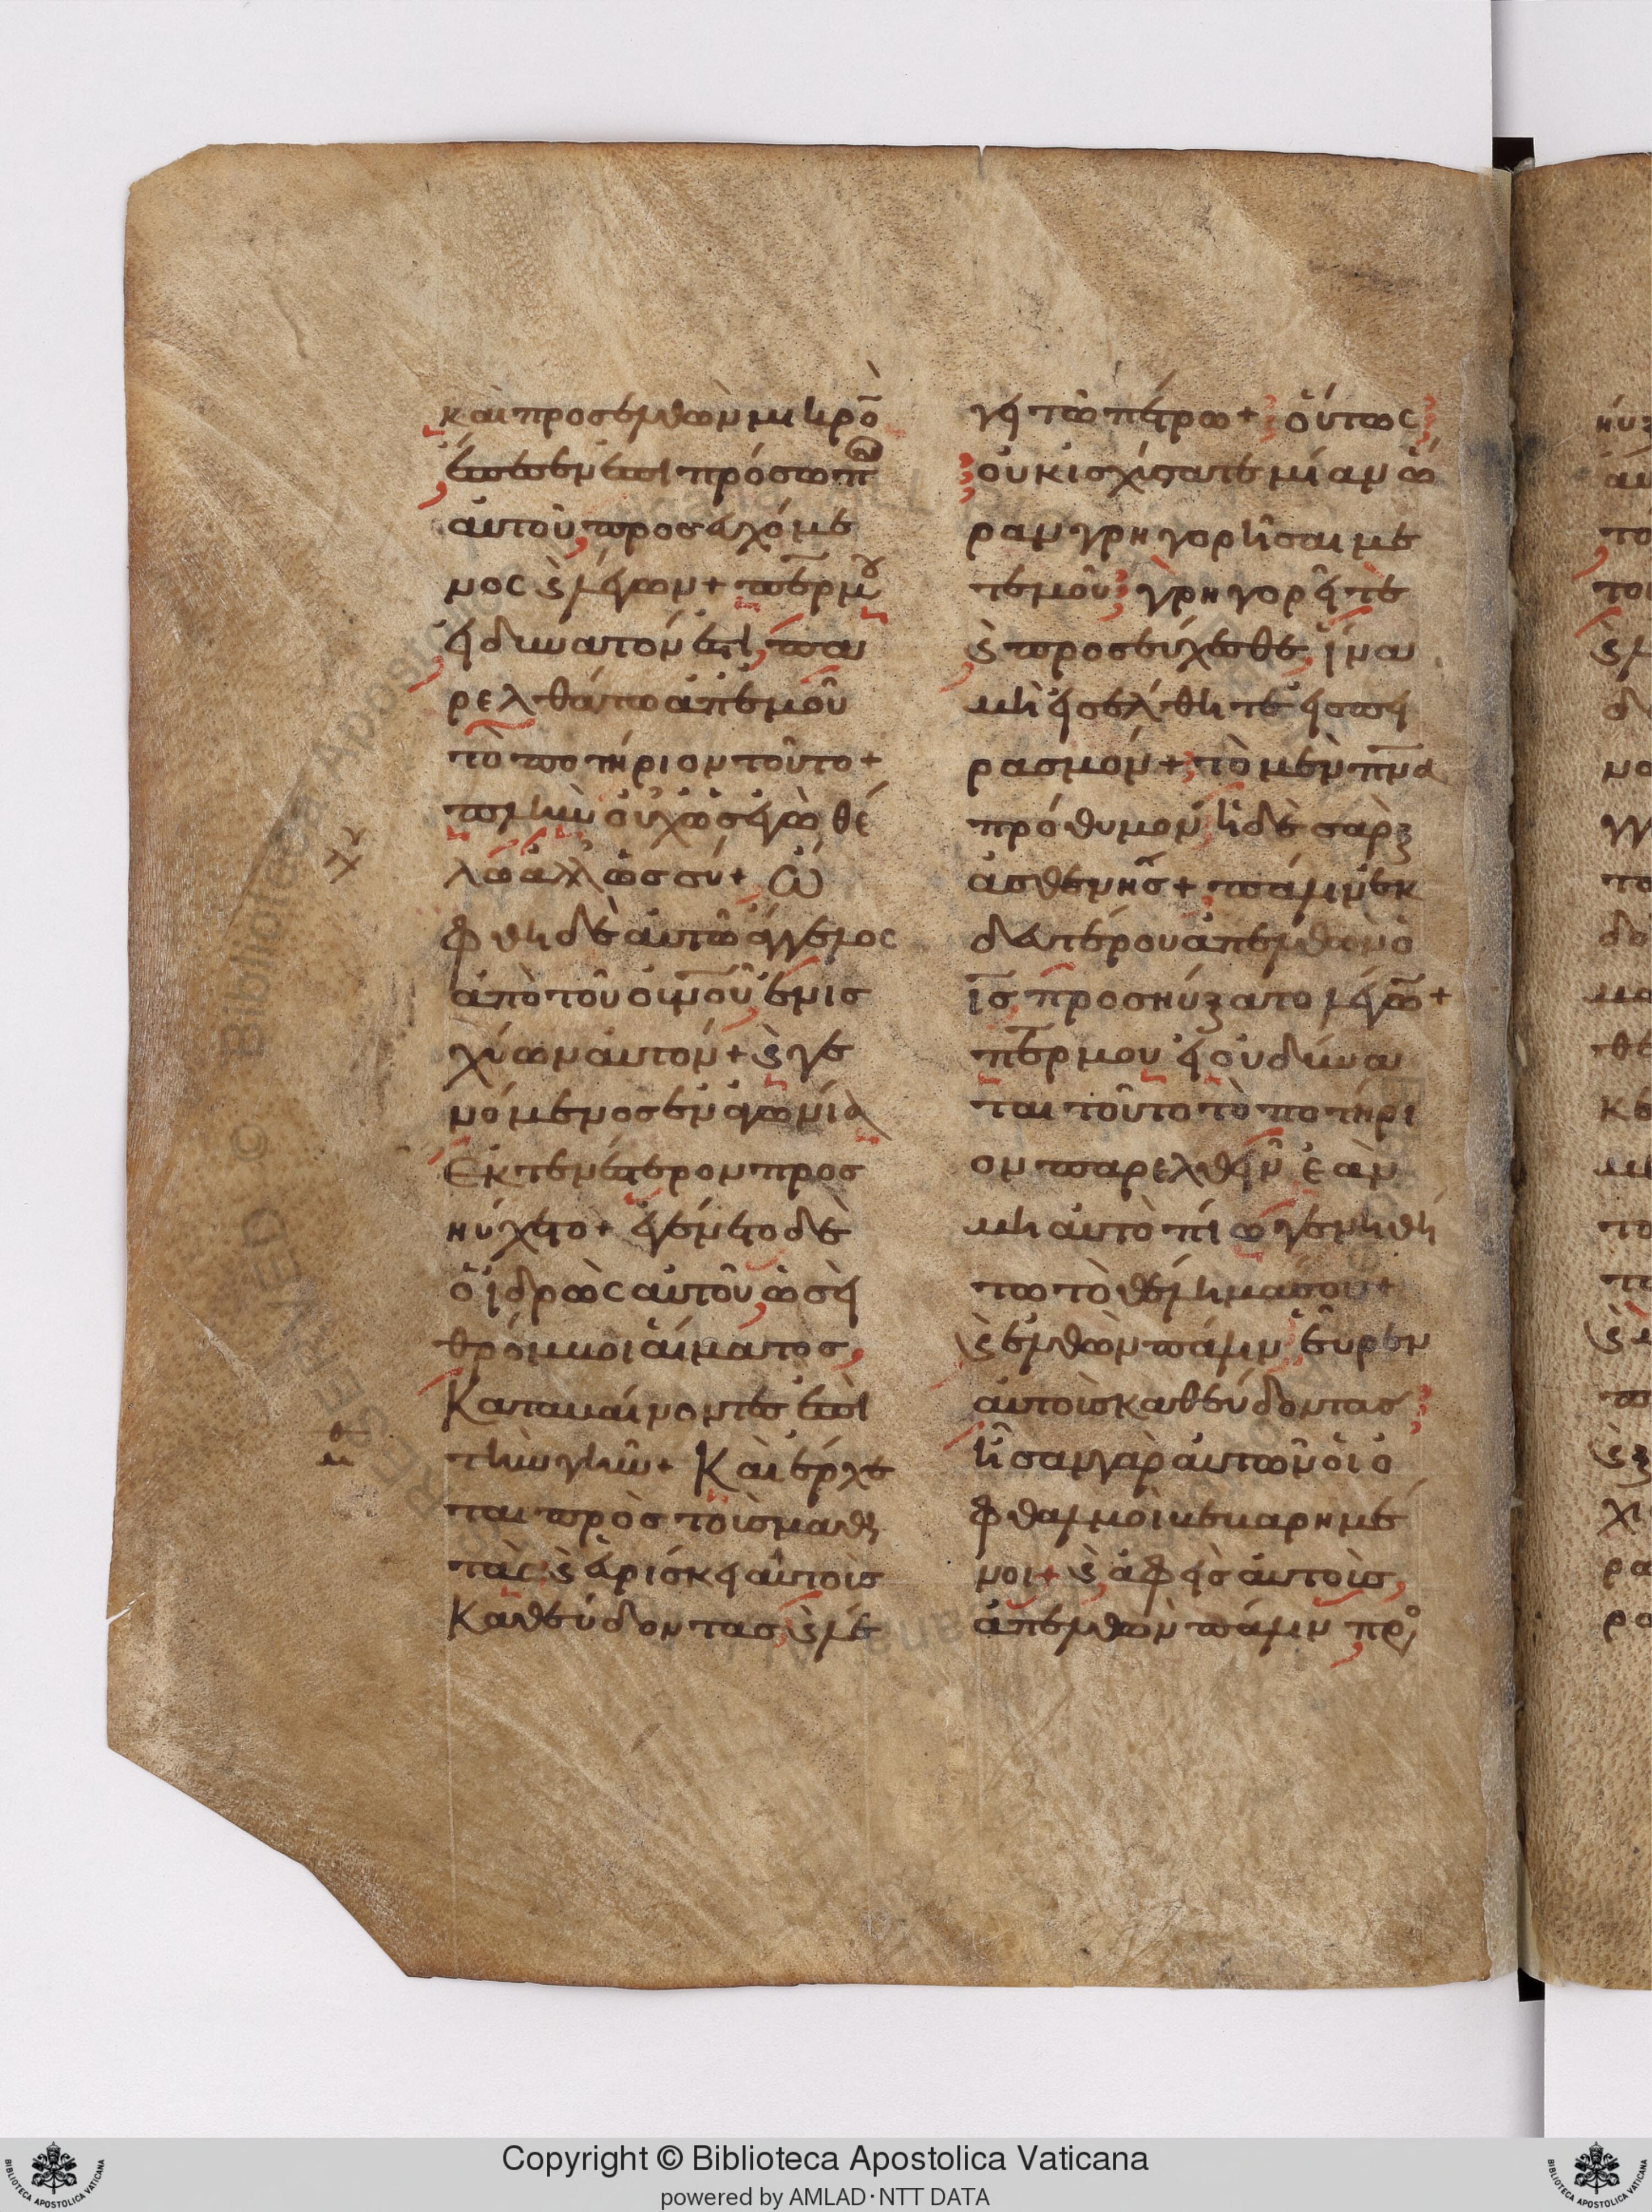 καὶ προσελθὼν μικρὸ
ἔπεσεν ἐπὶ πρόσωπ
αὐτοῦ προσευχόμε
νος ϗ λέγων + περ μου
εἰ δυνατόν ἐστι, πα
ρελθάτω ἀπ' ἐμοῦ
τὸ ποτήριον τοῦτο +
πλὴν οὐχ ὡς ἐγὼ θέ
λω ἀλλ ὡς σύ + Ὤ
φθη δὲ αὐτῷ ἄγγελος
ἀπὸ τοῦ οὐνοῦ ἐνισ
χύων αὐτόν + ϗ γε
νόμενος ἐν ἀγωνίᾳ
Ἐκτενέστερον προσ
ηύχετο + ἐγένετο δὲ
ὁ ἱδρὼς αὐτοῦ, ὡσεὶ
θρόμβοι αἵματος,
Καταβαίνοντες ἐπὶ
τὴν γῆν + Καὶ ἔρχε
ται πρὸς τοὺς μαθη
τὰς ϗ εὑρίσκει αὐτοὺς
Καθεύδοντας, ϗ λέ
γει τῷ πέτρω + οὕτως
οὐκ ἰσχύσατε μίαν ὥ
ραν γρηγορῆσαι με
τ' ἐμοῦ; γρηγορεῖτε
ϗ προσεύχεσθε, ἵνα
μὴ εἰσέλθητε εἰς πει
ρασμόν + τὸ μὲν πνα
πρόθυμον, ἡ δὲ σὰρξ
ἀσθενής + πάλιν ἐκ
δευτέρου ἀπελθὼν ὁ
ις προσηύξατο λέγω +
περ μου εἰ οὐ δύνα
ται τοῦτο τὸ ποτήρι
ον παρελθεῖν ἐὰν
μὴ αὐτὸ πίω γενηθή
τω τὸ θέλημά σου +
ϗ ἐλθὼν πάλιν, εὗρεν
αὐτοὺς καθεύδοντας
ἦσαν γὰρ αὐτῶν οἱ ὀ
φθαλμοὶ βεβαρημέ
νοι + ϗ ἀφεὶς αὐτοὺς,
ἀπελθὼν πάλιν προ